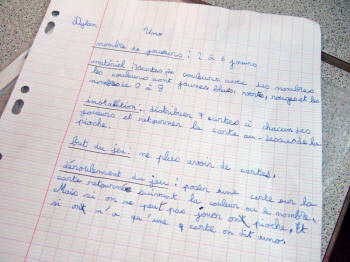 Dylan
Uno
nombre de joueurs : 2 à 6 jours
matériel : cartes de couleurs avec des nombres
les couleurs sont jaunes bleus, verte, rouges et les
nombres de 0 à 9
installation : distribuer 7 cartes à chacun des
joueurs et retourner la carte au-dessus de la
pioche.
but du jeu : ne plus avoir de cartes.
déroulement du jeu : poser une carte sur la
carte retournée suivant la couleur ou le nombre.
Mais si on ne peut pas jouer ont pioche. Et
si ont n'a qu'une carte on dit uno.